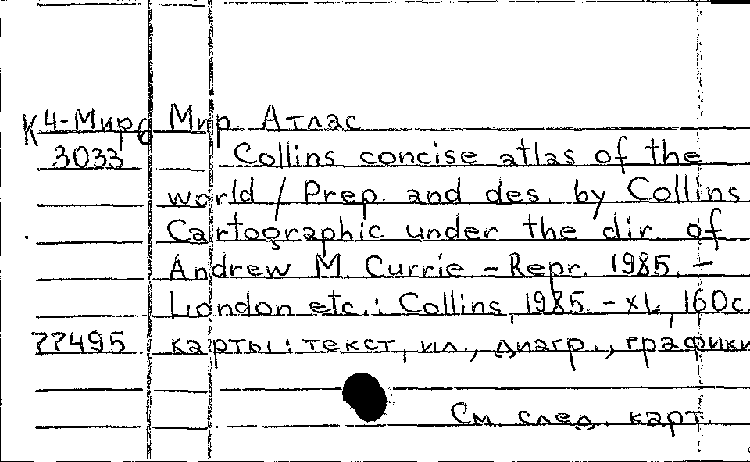 К 4-Мир6 Мир. Атлас
3033 Collins concise atlas of the
world / Prep. and des. by Collins
Cartographic under the dir. of
Andrew M. Currie - Repr. 1985. -
London etc.: Collins, 1985. - XL, 160с.
77495 карты: текст, ил., диагр., графики
См. след. карт.